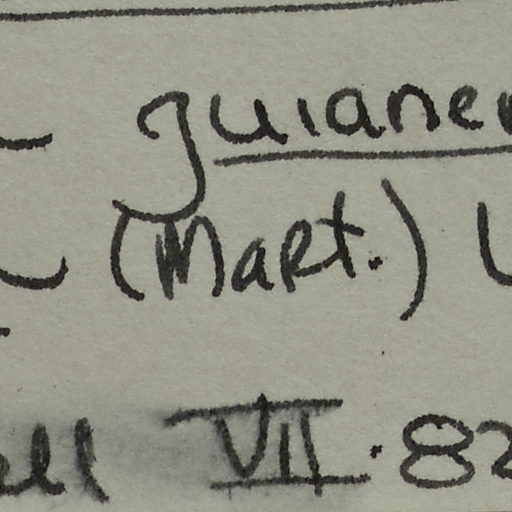 guianen
(Mart.)
ell VII. 82